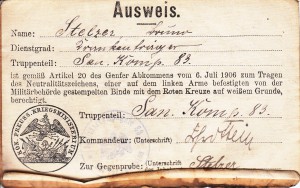 Ausweis.
Name: Stelzer Bruno
Dienstgrad: Krankenträger
Truppenteil: San. Komp. 83.
ist gemäß Artikel 20 des Genfer Abkommens vom 6. Juli 1906 zum Tragen
des Neutralitätszeichens, einer auf dem linken Arme befestigten von der
Militärbehörde gestempelten Binde mit dem Roten Kreuze auf weißem Grunde,
berechtigt.
Truppenteil: San. Komp. 83.
Kommandeur: (Unterschrift)
Zur Gegenprobe: (Unterschrift
Stelzer
KGL. PREUSS. KRIEGSMINISTERIUM